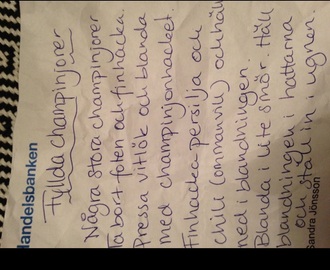 Handelsbanken
Fyllda champinjoner
Några stora champinjoner
Ta bort foten och finhacka.
Pressa vitlök och blanda
med champinjonhacket.
Finhacka persilja och
chili (om man vill) och häll
ned i blandningen.
Blanda i lite smör. Häll
blandningen i hattarna
och ställ in i ugnen.
Sandra Jönsson